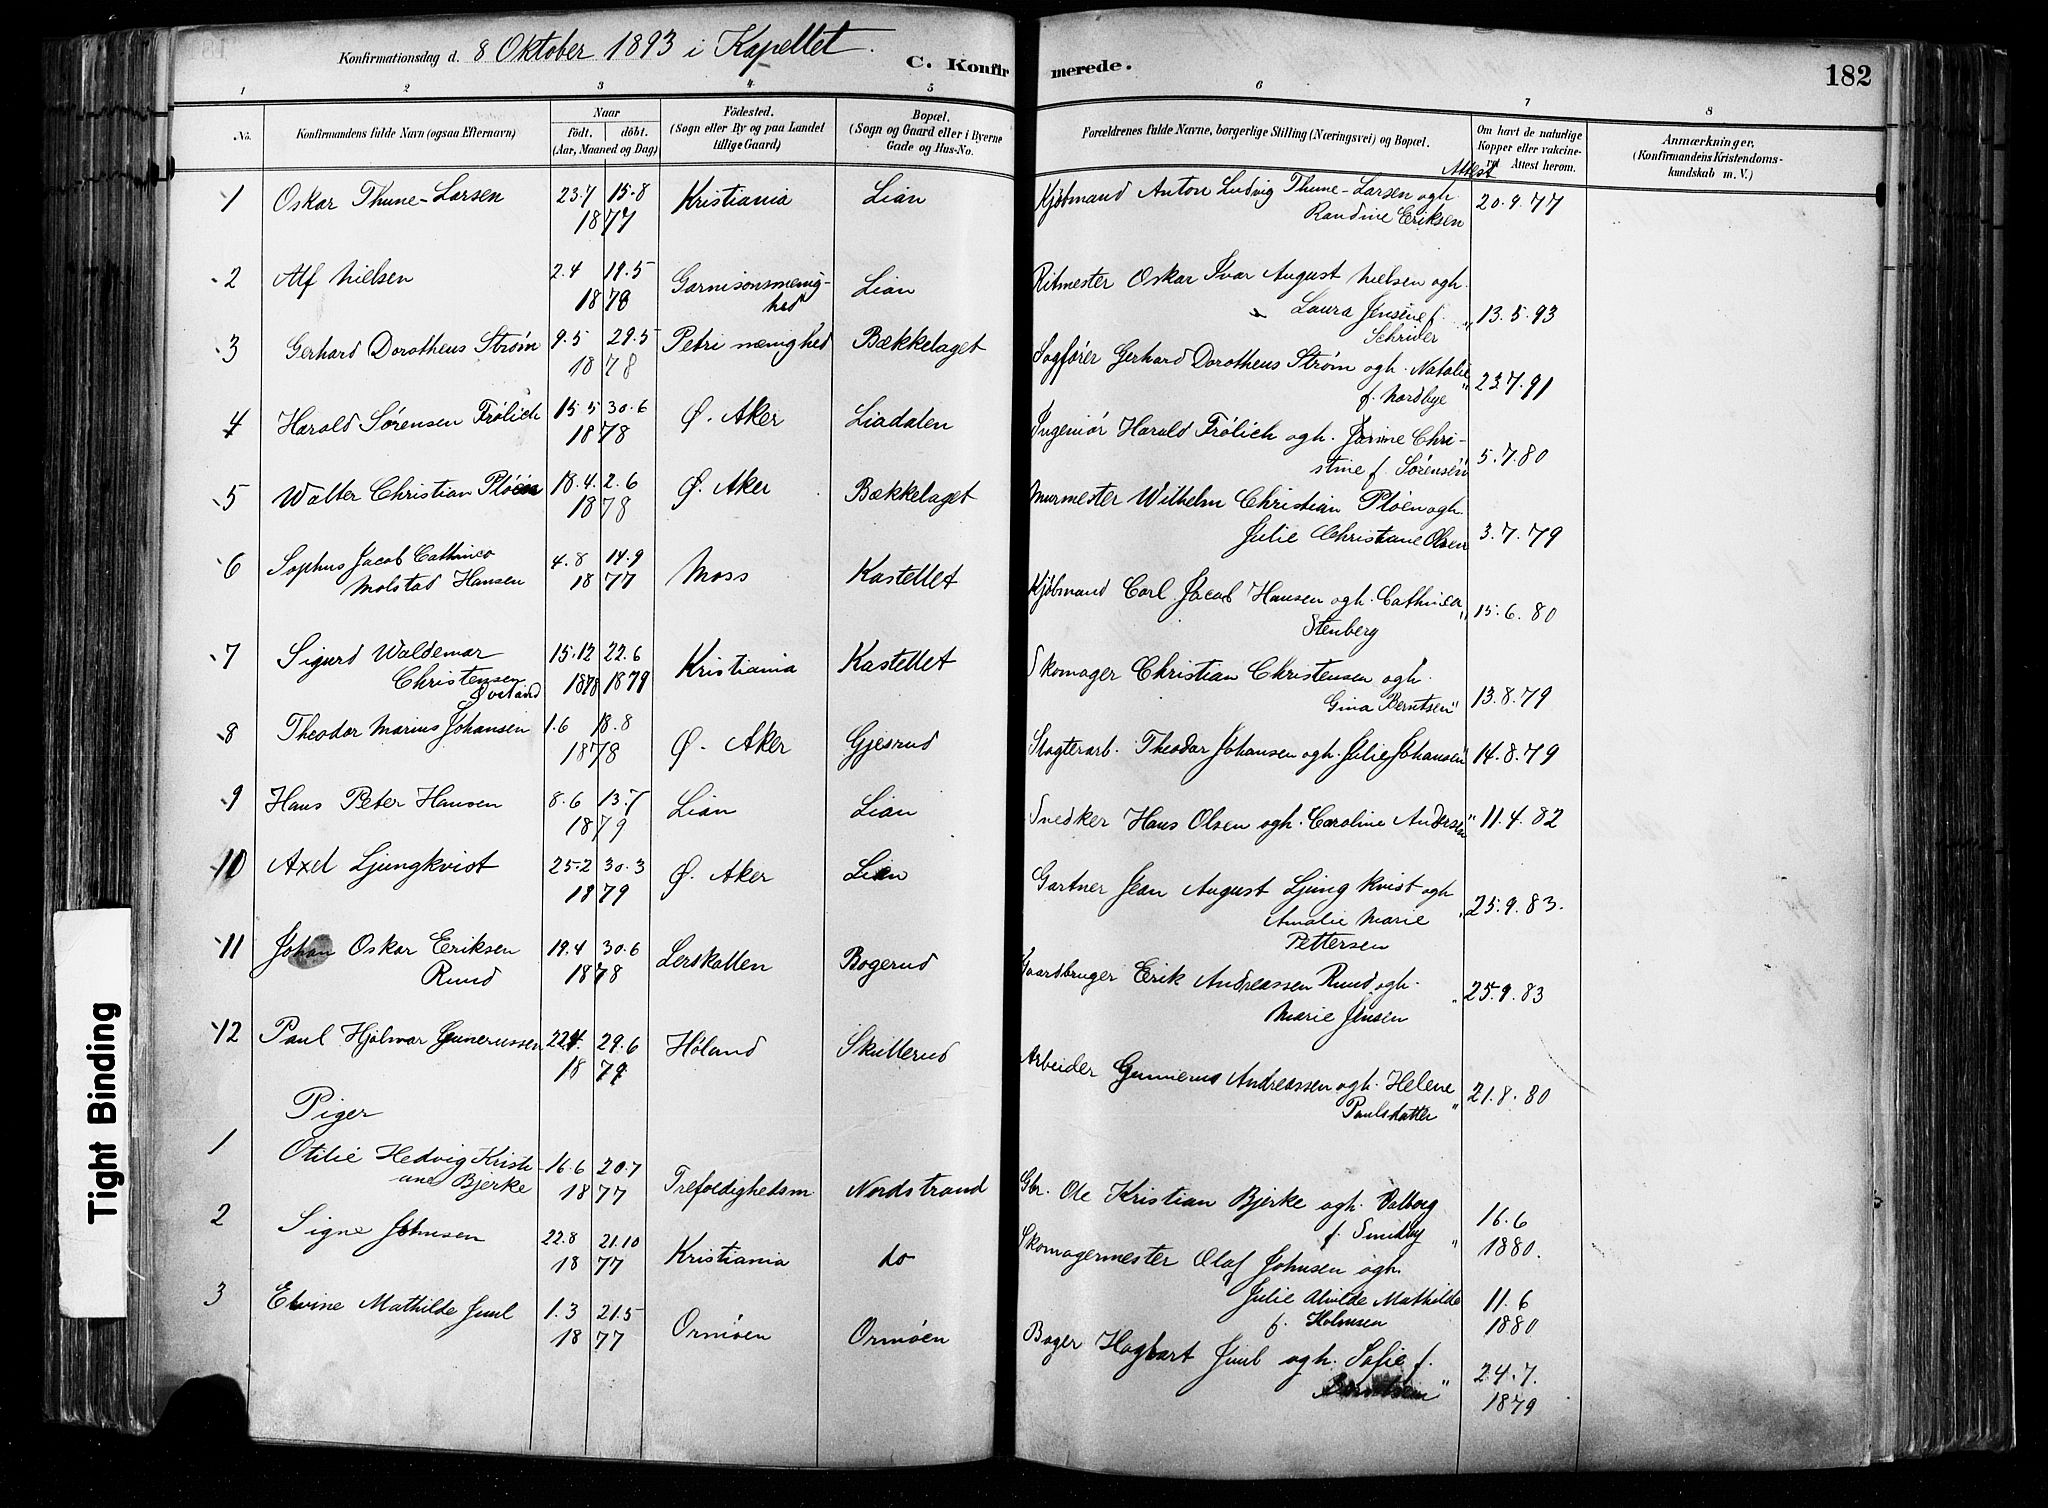 Konfirmationsdag d. 8 Oktober 1893 i Kapellet.
C. Konfirmerede.
182
1 2 3 4 5 6 7 8
No.
Konfirmandens fulde Navn (ogsaa Efternavn)
Naar
födt. döbt.
(Aar, Maaned og Dag)
Födested.
(Sogn eller By og paa Landet
tillige Gaard)
Bopæl.
(Sogn og Gaard eller i Byerne
Gade og Hus-No.
Forældrenes fulde Navne, borgerlige Stilling (Næringsvei) og Bopæl.
Om havt de naturlige
Kopper eller vakcine-
ret Attest herom.
Anmærkninger.
(Konfirmandens Kristendoms-
kundskab m. V.)
Attest
1 Oskar Thune-Larsen 23.7 15.8 Kristiania Lian Kjøbmand Anton Ludvig Thune-Larsen ogh. 20.9.77
1877 Randine Eriksen
2 Alf Nielsen 2.4 19.5 Garnisonsmenig- Lian Ritmester Oskar Ivar August Nielsen ogh.
1878 hed Laura Jensine f. " 13.5.93
Schrider
3 Gerhard Dorotheus Strøm 9.5 29.5 Petri menighed Bækkelaget Sagfører Gerhard Dorotheus Strøm ogh. Natalie
1878 f. Nordbye " 23.7.91
4 Harald Sørensen Frølich 15.5 30.6 Ø. Aker Liadalen Ingeniør Harald Frølich ogh. Janine Chri-
1878 stine f. Sørensen " 5.7.80
5 Walter Christian Pløen 18.4 2.6 Ø. Aker Bækkelaget Murmester Wilhelm Christian Pløen ogh.
1878 Julie Christiane Olsen 3.7.79
6 Sophus Jacob Cathinco 4.8 14.9 Moss Kastellet Kjøbmand Carl Jacob Hansen ogh. Cathinca " 15.6.80
Molstad Hansen 1877 Stenberg
7 Sigurd Waldemar 15.12 22.6 Kristiania Kastellet Skomager Christian Christensen ogh.
Christensen 1878 1879 Gina Berntsen " 13.8.79
8 Theodor Marius Johansen 1.6 18.8 Ø. Aker Gjesrud Slagterarb. Theodor Johansen ogh. Julie Johansen " 14.8.79
1878
9 Hans Peter Hansen 8.6 13.7 Lian Lian Snedker Hans Olsen ogh. Caroline Andersen " 11.4.82
1879
10 Axel Ljungkvist 25.2 30.3 Ø. Aker Lian Gartner Jean August Ljungkvist ogh
1879 Amalie Marie " 25.9.83.
Pettersen
11 Johan Oskar Eriksen 19.4 30.6 Lerskallen Bogerud Gaardbruger Erik Andreassen Ruud ogh.
Ruud 1878 Marie Jensen " 25.9.83
12 Paul Hjalmar Gunerussen 22.4 29.6 Høland Skullerud Arbeider Gunnerus Andreassen ogh. Helene
1879 Paulsdatter " 21.8.80
Piger
1 Otilie Hedvig Kristi- 16.6 20.7 Trefoldighedsm Nordstrand Gbr. Ole Kristian Bjerke ogh. Valborg 16.6
ane Bjerke 1877 f. Smedby " 1880.
2 Signe Johnsen 22.8 21.10 Kristiania do Skomagermester Olaf Johnsen ogh.
1877 Julie Alvilde Mathilde 11.6
f. Holmsen 1880
3 Elvine Mathilde Juul 1.3 21.5 Ormøen Ormøen Bager Hagbart Juul ogh. Sofie f. 24.7.
1877 " 1879
Tight Binding